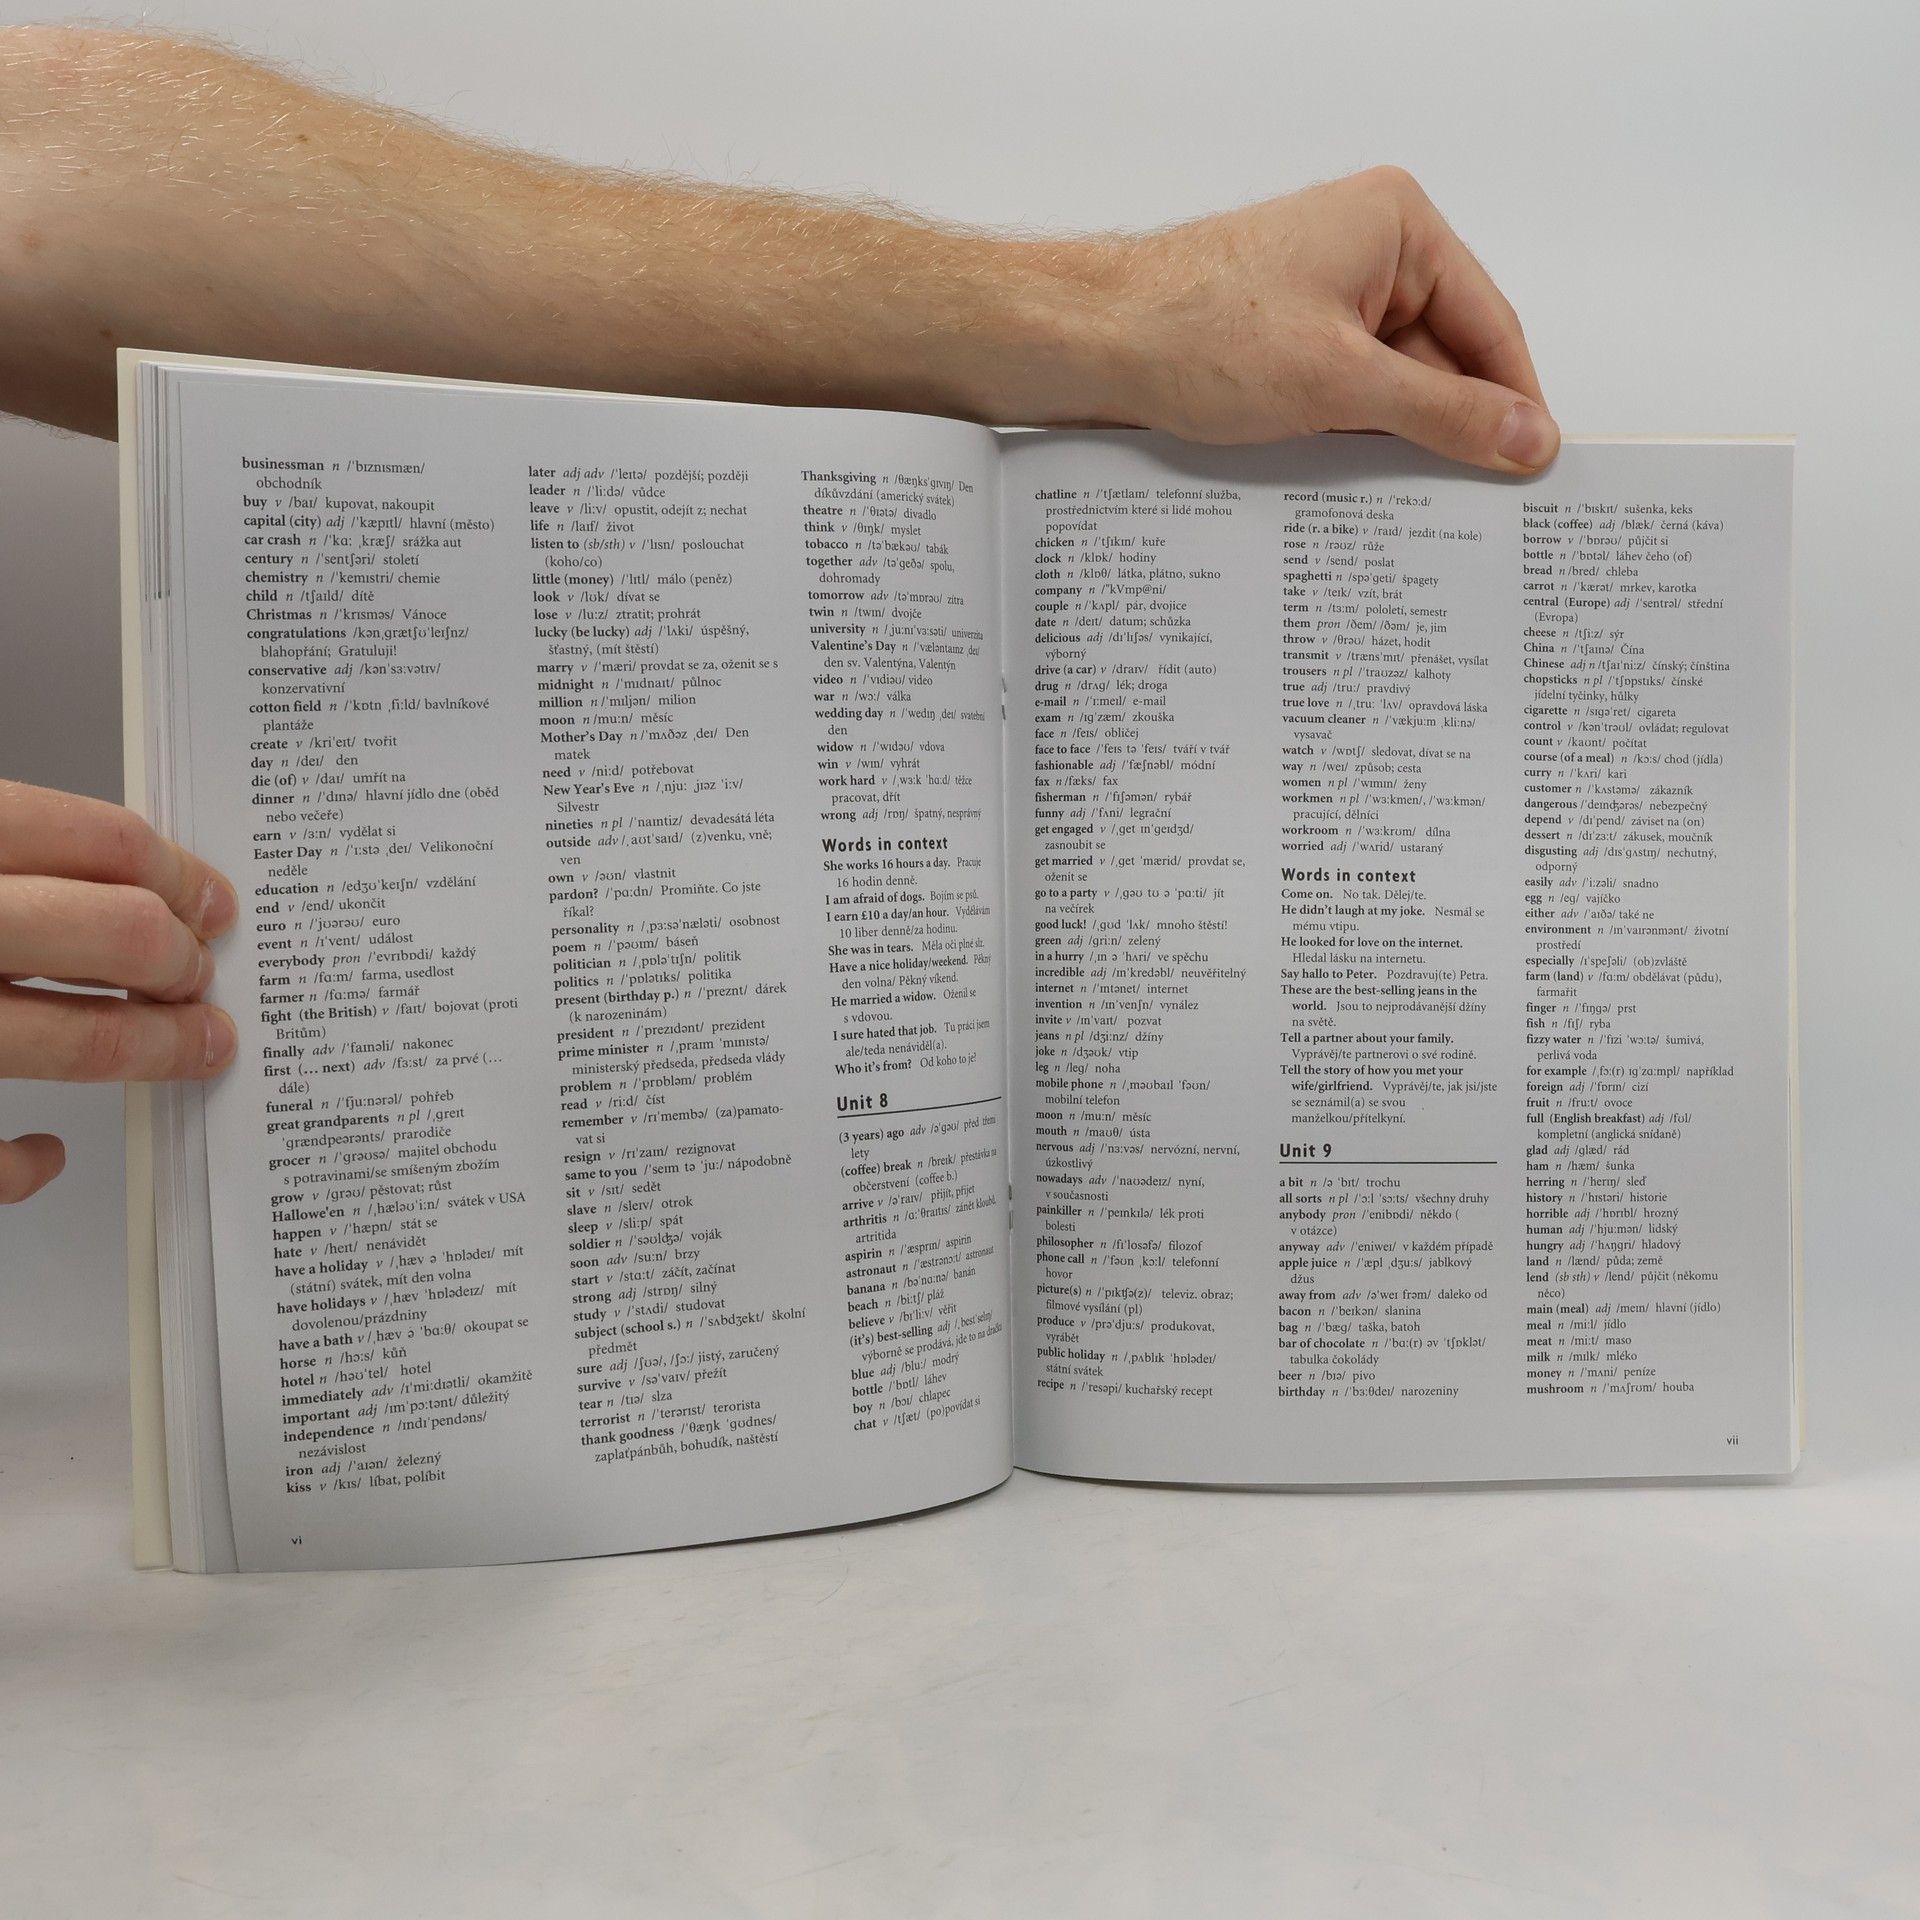 businessman n /ˈbɪznɪsmæn/
obchodník
buy v /baɪ/ kupovat, nakoupit
capital (city) adj /ˈkæpɪtl/ hlavní (město)
car crash n /ˈkɑː ˌkræʃ/ srážka aut
century n /ˈsentʃəri/ století
chemistry n /ˈkemɪstri/ chemie
child n /tʃaɪld/ dítě
Christmas n /ˈkrɪsməs/ Vánoce
congratulations /kənˌgrætʃʊˈleɪʃnz/
blahopřání; Gratuluji!
conservative adj /kənˈsɜːvətɪv/
konzervativní
cotton field n /ˈkɒtn ˌfiːld/ bavlníkové
plantáže
create v /kriˈeɪt/ tvořit
day n /deɪ/ den
die (of) v /daɪ/ umřít na
dinner n /ˈdɪnə/ hlavní jídlo dne (oběd
nebo večeře)
earn v /ɜːn/ vydělat si
Easter Day n /ˈɪːstə ˌdeɪ/ Velikonoční
neděle
education n /edʒʊˈkeɪʃn/ vzdělání
end v /end/ ukončit
euro n /ˈjʊərəʊ/ euro
event n /ɪˈvent/ událost
everybody pron /ˈevrɪbɒdi/ každý
farm n /fɑːm/ farma, usedlost
farmer n /fɑːmə/ farmář
fight (the British) v /faɪt/ bojovat (proti
Britům)
finally adv /ˈfaɪnəli/ nakonec
first (… next) adv /fɜːst/ za prvé (…
dále)
funeral n /ˈfjuːnərəl/ pohřeb
great grandparents n pl /ˌgreɪt
ˈgrændpeərənts/ prarodiče
grocer n /ˈgrəʊsə/ majitel obchodu
s potravinami/se smíšeným zbožím
grow v /grəʊ/ pěstovat; růst
Hallowe'en n /ˌhæləʊˈiːn/ svátek v USA
happen v /ˈhæpn/ stát se
hate v /heɪt/ nenávidět
have a holiday v /ˌhæv ə ˈhɒlədeɪ/ mít
(státní) svátek, mít den volna
have holidays v /ˌhæv ˈhɒlədeɪz/ mít
dovolenou/prázdniny
have a bath v /ˌhæv ə ˈbɑːθ/ okoupat se
horse n /hɔːs/ kůň
hotel n /həʊˈtel/ hotel
immediately adv /ɪˈmiːdɪətli/ okamžitě
important adj /ɪmˈpɔːtənt/ důležitý
independence n /ɪndɪˈpendəns/
nezávislost
iron adj /ˈaɪən/ železný
kiss v /kɪs/ líbat, políbit
vi
later adj adv /ˈleɪtə/ pozdější; později
leader n /ˈliːdə/ vůdce
leave v /liːv/ opustit, odejít z; nechat
life n /laɪf/ život
listen to (sb/sth) v /ˈlɪsn/ poslouchat
(koho/co)
little (money) /ˈlɪtl/ málo (peněz)
look v /lʊk/ dívat se
lose v /luːz/ ztratit; prohrát
lucky (be lucky) adj /ˈlʌki/ úspěšný,
šťastný, (mít štěstí)
marry v /ˈmæri/ provdat se za, oženit se s
midnight n /ˈmɪdnaɪt/ půlnoc
million n /ˈmɪljən/ milion
moon n /muːn/ měsíc
Mother's Day n /ˈmʌðəz ˌdeɪ/ Den
matek
need v /niːd/ potřebovat
New Year's Eve n /ˌnjuː ˌjɪəz ˈiːv/
Silvestr
nineties n pl /ˈnaɪntiz/ devadesátá léta
outside adv /ˌaʊtˈsaɪd/ (z)venku, vně;
ven
own v /əʊn/ vlastnit
pardon? /ˈpɑːdn/ Promiňte. Co jste
říkal?
personality n /ˌpɜːsəˈnæləti/ osobnost
poem n /ˈpəʊɪm/ báseň
politician n /ˌpɒləˈtɪʃn/ politik
politics n /ˈpɒlətɪks/ politika
present (birthday p.) n /ˈpreznt/ dárek
(k narozeninám)
president n /ˈprezɪdənt/ prezident
prime minister n /ˌpraɪm ˈmɪnɪstə/
ministerský předseda, předseda vlády
problem n /ˈprɒbləm/ problém
read v /riːd/ číst
remember v /rɪˈmembə/ (za)pamato-
vat si
resign v /rɪˈzaɪn/ rezignovat
same to you /ˈseɪm tə ˈjuː/ nápodobně
sit v /sɪt/ sedět
slave n /sleɪv/ otrok
sleep v /sliːp/ spát
soldier n /ˈsəʊldʒə/ voják
soon adv /suːn/ brzy
start v /stɑːt/ záčít, začínat
strong adj /strɒŋ/ silný
study v /ˈstʌdi/ studovat
subject (school s.) n /ˈsʌbdʒekt/ školní
předmět
sure adj /ʃʊə/, /ʃɔː/ jistý, zaručený
survive v /səˈvaɪv/ přežít
tear n /tɪə/ slza
terrorist n /ˈterərɪst/ terorista
thank goodness /ˈθæŋk ˈgʊdnes/
zaplaťpánbůh, bohudík, naštěstí
Thanksgiving n /θæŋksˈgɪvɪŋ/ Den
díkůvzdání (americký svátek)
theatre n /ˈθɪətə/ divadlo
think v /θɪŋk/ myslet
tobacco n /təˈbækəʊ/ tabák
together adv /təˈgeðə/ spolu,
dohromady
tomorrow adv /təˈmɒrəʊ/ zítra
twin n /twɪn/ dvojče
university n /ˌjuːnɪˈvɜːsəti/ univerzita
Valentine's Day n /ˈvæləntaɪnz ˌdeɪ/
den sv. Valentýna, Valentýn
video n /ˈvɪdiəʊ/ video
war n /wɔː/ válka
wedding day n /ˈwedɪŋ ˌdeɪ/ svatební
den
widow n /ˈwɪdəʊ/ vdova
win v /wɪn/ vyhrát
work hard v /ˌwɜːk ˈhɑːd/ těžce
pracovat, dřít
wrong adj /rɒŋ/ špatný, nesprávný
Words in context
She works 16 hours a day. Pracuje
16 hodin denně.
I am afraid of dogs. Bojím se psů.
I earn £10 a day/an hour. Vydělávám
10 liber denně/za hodinu.
She was in tears. Měla oči plné slz.
Have a nice holiday/weekend. Pěkný
den volna/ Pěkný víkend.
He married a widow. Oženil se
s vdovou.
I sure hated that job. Tu práci jsem
ale/teda nenáviděl(a).
Who it's from? Od koho to je?
Unit 8
(3 years) ago adv /əˈgəʊ/ před třemi
lety
(coffee) break n /breɪk/ přestávka na
občerstvení (coffee b.)
arrive v /əˈraɪv/ přijít, přijet
arthritis n /ɑːˈθraɪtɪs/ zánět kloubů,
artritida
aspirin n /ˈæsprɪn/ aspirin
astronaut n /ˈæstrənɔːt/ astronaut
banana n /bəˈnɑːnə/ banán
beach n /biːtʃ/ pláž
believe v /bɪˈliːv/ věřit
(it's) best-selling adj /ˌbestˈselɪŋ/
výborně se prodává, jde to na dračku
blue adj /bluː/ modrý
bottle n /ˈbɒtl/ láhev
boy n /bɔɪ/ chlapec
chat v /tʃæt/ (po)povídat si
chatline n /ˈtʃætlaɪn/ telefonní služba,
prostřednictvím které si lidé mohou
popovídat
chicken n /ˈtʃɪkɪn/ kuře
clock n /klɒk/ hodiny
cloth n /klɒθ/ látka, plátno, sukno
company n /"kVmp@ni/
couple n /ˈkʌpl/ pár, dvojice
date n /deɪt/ datum; schůzka
delicious adj /dɪˈlɪʃəs/ vynikající,
výborný
drive (a car) v /draɪv/ řídit (auto)
drug n /drʌg/ lék; droga
e-mail n /ˈɪːmeɪl/ e-mail
exam n /ɪgˈzæm/ zkouška
face n /feɪs/ obličej
face to face /ˈfeɪs tə ˈfeɪs/ tváří v tvář
fashionable adj /ˈfæʃnəbl/ módní
fax n /fæks/ fax
fisherman n /ˈfɪʃəmən/ rybář
funny adj /ˈfʌni/ legrační
get engaged v /ˌget ɪnˈgeɪdʒd/
zasnoubit se
get married v /ˌget ˈmærid/ provdat se,
oženit se
go to a party v /ˌgəʊ tʊ ə ˈpɑːti/ jít
na večírek
good luck! /ˌgʊd ˈlʌk/ mnoho štěstí!
green adj /griːn/ zelený
in a hurry /ˌɪn ə ˈhʌri/ ve spěchu
incredible adj /ɪnˈkredəbl/ neuvěřitelný
internet n /ˈɪntənet/ internet
invention n /ɪnˈvenʃn/ vynález
invite v /ɪnˈvaɪt/ pozvat
jeans n pl /dʒiːnz/ džíny
joke n /dʒəʊk/ vtip
leg n /leg/ noha
mobile phone n /ˌməʊbaɪl ˈfəʊn/
mobilní telefon
moon n /muːn/ měsíc
mouth n /maʊθ/ ústa
nervous adj /ˈnɜːvəs/ nervózní, nervní,
úzkostlivý
nowadays adv /ˈnaʊədeɪz/ nyní,
v současnosti
painkiller n /ˈpeɪnkɪlə/ lék proti
bolesti
philosopher n /fɪˈlosəfə/ filozof
phone call n /ˈfəʊn ˌkɔːl/ telefonní
hovor
picture(s) n /ˈpɪktʃə(z)/ televiz. obraz;
filmové vysílání (pl)
produce v /prəˈdjuːs/ produkovat,
vyrábět
public holiday n /ˌpʌblɪk ˈhɒlədeɪ/
státní svátek
recipe n /ˈresəpi/ kuchařský recept
record (music r.) n /ˈrekɔːd/
gramofonová deska
ride (r. a bike) v /raɪd/ jezdit (na kole)
rose n /rəʊz/ růže
send v /send/ poslat
spaghetti n /spəˈgeti/ špagety
take v /teɪk/ vzít, brát
term n /tɜːm/ pololetí, semestr
them pron /ðem/ /ðəm/ je, jim
throw v /θrəʊ/ házet, hodit
transmit v /trænsˈmɪt/ přenášet, vysílat
trousers n pl /ˈtraʊzəz/ kalhoty
true adj /truː/ pravdivý
true love n /ˌtruː ˈlʌv/ opravdová láska
vacuum cleaner n /ˈvækjuːm ˌkliːnə/
vysavač
watch v /wɒtʃ/ sledovat, dívat se na
way n /weɪ/ způsob; cesta
women n pl /ˈwɪmɪn/ ženy
workmen n pl /ˈwɜːkmen/, /ˈwɜːkmən/
pracující, dělníci
workroom n /ˈwɜːkrʊm/ dílna
worried adj /ˈwʌrid/ ustaraný
Words in context
Come on. No tak. Dělej/te.
He didn't laugh at my joke. Nesmál se
mému vtipu.
He looked for love on the internet.
Hledal lásku na internetu.
Say hallo to Peter. Pozdravuj(te) Petra.
These are the best-selling jeans in the
world. Jsou to nejprodávanější džíny
na světě.
Tell a partner about your family.
Vyprávěj/te partnerovi o své rodině.
Tell the story of how you met your
wife/girlfriend. Vyprávěj/te, jak jsi/jste
se seznámil(a) se svou
manželkou/přítelkyní.
Unit 9
a bit n /ə ˈbɪt/ trochu
all sorts n pl /ˈɔːl ˈsɔːts/ všechny druhy
anybody pron /ˈenibɒdi/ někdo (
v otázce)
anyway adv /ˈeniweɪ/ v každém případě
apple juice n /ˈæpl ˌdʒuːs/ jablkový
džus
away from adv /əˈweɪ frəm/ daleko od
bacon n /ˈbeɪkən/ slanina
bag n /ˈbæg/ taška, batoh
bar of chocolate n /ˈbɑː(r) əv ˈtʃɒklət/
tabulka čokolády
beer n /bɪə/ pivo
birthday n /ˈbɜːθdeɪ/ narozeniny
biscuit n /ˈbɪskɪt/ sušenka, keks
black (coffee) adj /blæk/ černá (káva)
borrow v /ˈbɒrəʊ/ půjčit si
bottle n /ˈbɒtəl/ láhev čeho (of)
bread n /bred/ chleba
carrot n /ˈkærət/ mrkev, karotka
central (Europe) adj /ˈsentrəl/ střední
(Evropa)
cheese n /tʃiːz/ sýr
China n /ˈtʃaɪnə/ Čína
Chinese adj n /tʃaɪˈniːz/ čínský; čínština
chopsticks n pl /ˈtʃɒpstɪks/ čínské
jídelní tyčinky, hůlky
cigarette n /sɪgəˈret/ cigareta
control v /kənˈtrəʊl/ ovládat; regulovat
count v /kaʊnt/ počítat
course (of a meal) n /kɔːs/ chod (jídla)
curry n /ˈkʌri/ kari
customer n /ˈkʌstəmə/ zákazník
dangerous /ˈdeɪndʒərəs/ nebezpečný
depend v /dɪˈpend/ záviset na (on)
dessert n /dɪˈzɜːt/ zákusek, moučník
disgusting adj /dɪsˈgʌstɪŋ/ nechutný,
odporný
easily adv /ˈiːzəli/ snadno
egg n /eg/ vajíčko
either adv /ˈaɪðə/ také ne
environment n /ɪnˈvaɪrənmənt/ životní
prostředí
especially /ɪˈspeʃəli/ (ob)zvláště
farm (land) v /fɑːm/ obdělávat (půdu),
farmařit
finger n /ˈfɪŋgə/ prst
fish n /fɪʃ/ ryba
fizzy water n /ˈfɪzi ˈwɔːtə/ šumivá,
perlivá voda
for example /ˌfɔː(r) ɪgˈzɑːmpl/ například
foreign adj /ˈfɒrɪn/ cizí
fruit n /fruːt/ ovoce
full (English breakfast) adj /fʊl/
kompletní (anglická snídaně)
glad adj /glæd/ rád
ham n /hæm/ šunka
herring n /ˈherɪŋ/ sleď
history n /ˈhɪstəri/ historie
horrible adj /ˈhɒrɪbl/ hrozný
human adj /ˈhjuːmən/ lidský
hungry adj /ˈhʌŋgri/ hladový
land n /lænd/ půda; země
lend (sb sth) v /lend/ půjčit (někomu
něco)
main (meal) adj /meɪn/ hlavní (jídlo)
meal n /miːl/ jídlo
meat n /miːt/ maso
milk n /mɪlk/ mléko
money n /ˈmʌni/ peníze
mushroom n /ˈmʌʃrʊm/ houba
vii